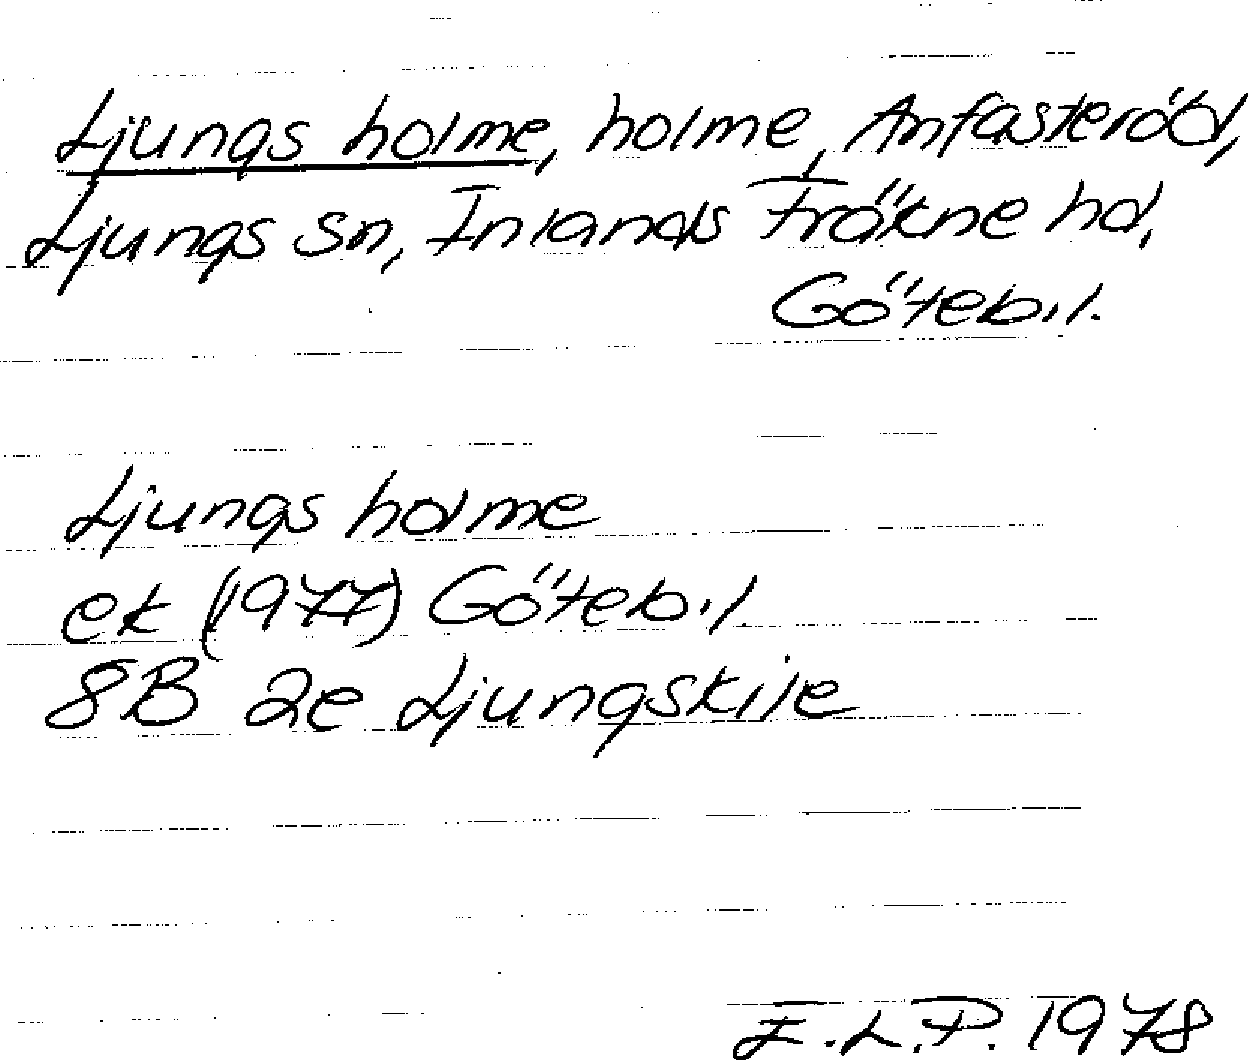 Ljungs holme, holme, Anfasteröd,
Ljungs sn, Inlands Fräkne hd,
Göteb.l.
Ljungs holme
ek (1977) Göteb.l.
8B 2e Ljungskile
E.L.P. 1978